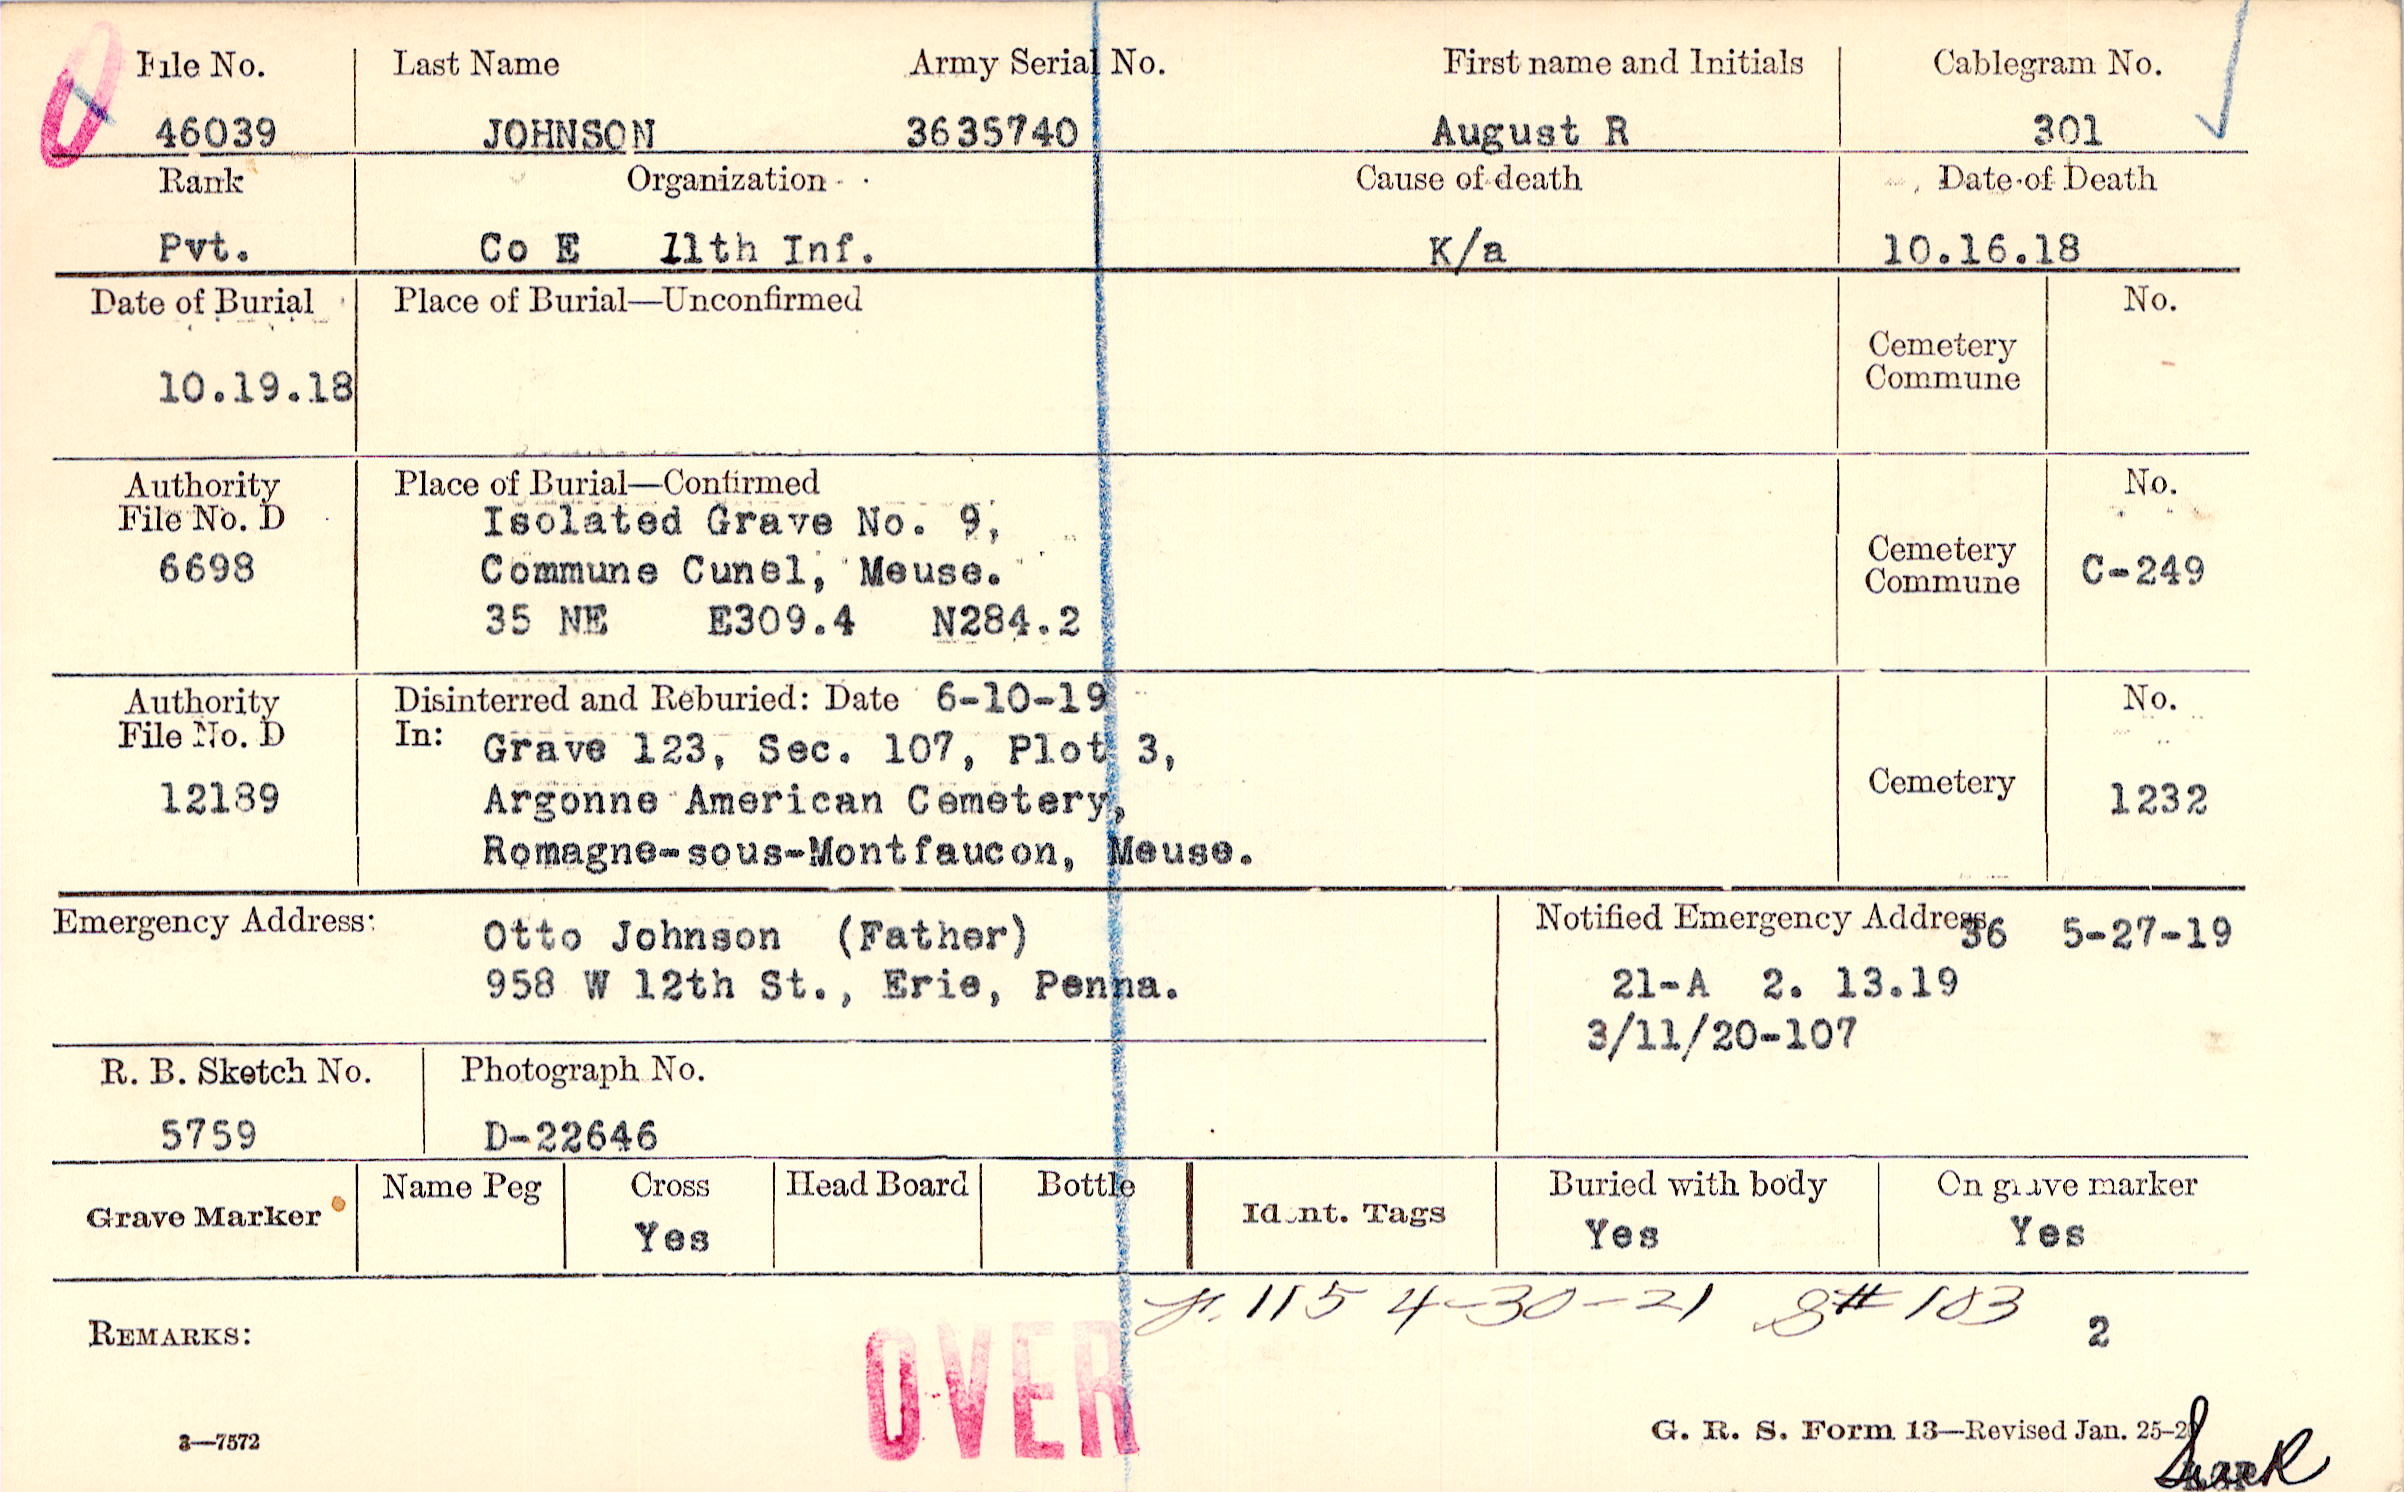 File No. Last Name Army Serial No. First name and Initials Cablegram No.
46039 JOHNSON 3635740 August R 301
Rank Organization Cause of death Date of Death
Pvt. Co E 11th Inf. K/a 10.16.18
Date of Burial Place of Burial—Unconfirmed No.
Cemetery
Commune
10.19.18
Authority Place of Burial—Confirmed No.
File No. D Isolated Grave No. 9,
6698 Commune Cunel, Meuse. Cemetery
Commune C-249
35 NE E309.4 N284.2
Authority Disinterred and Reburied: Date 6-10-19 No.
File No. D In: Grave 123, Sec. 107, Plot 3,
12189 Argonne American Cemetery, Cemetery 1232
Romagne-sous-Montfaucon, Meuse.
Emergency Address: Otto Johnson (Father) Notified Emergency Address 36 5-27-19
958 W 12th St., Erie, Penna. 21-A 2. 13.19
3/11/20-107
R. B. Sketch No. Photograph No.
5759 D-22646
Grave Marker Name Peg Cross Head Board Bottle Ident. Tags Buried with body On grave marker
Yes Yes Yes
115 4-30-21 S# 103
REMARKS: 2
OVER
3—7572 G. R. S. Form 13—Revised Jan. 25-2